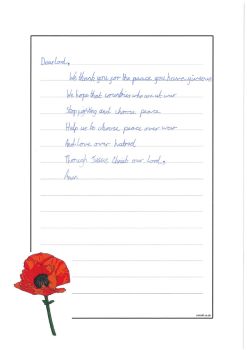 Dear Lord,
We thank you for the peace you have given us
We hope that countries who are at war
Stop fighting and choose peace
Help us to choose peace over war
And love over hatred
Through Jesus Christ our Lord.
Amen